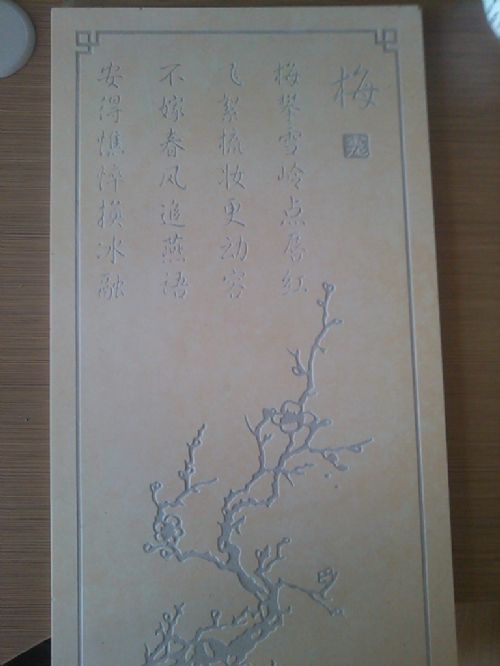 梅
梅攀雪岭点唇红
飞絮梳妆更动容
不嫁春风追燕语
安得憔悴换冰融